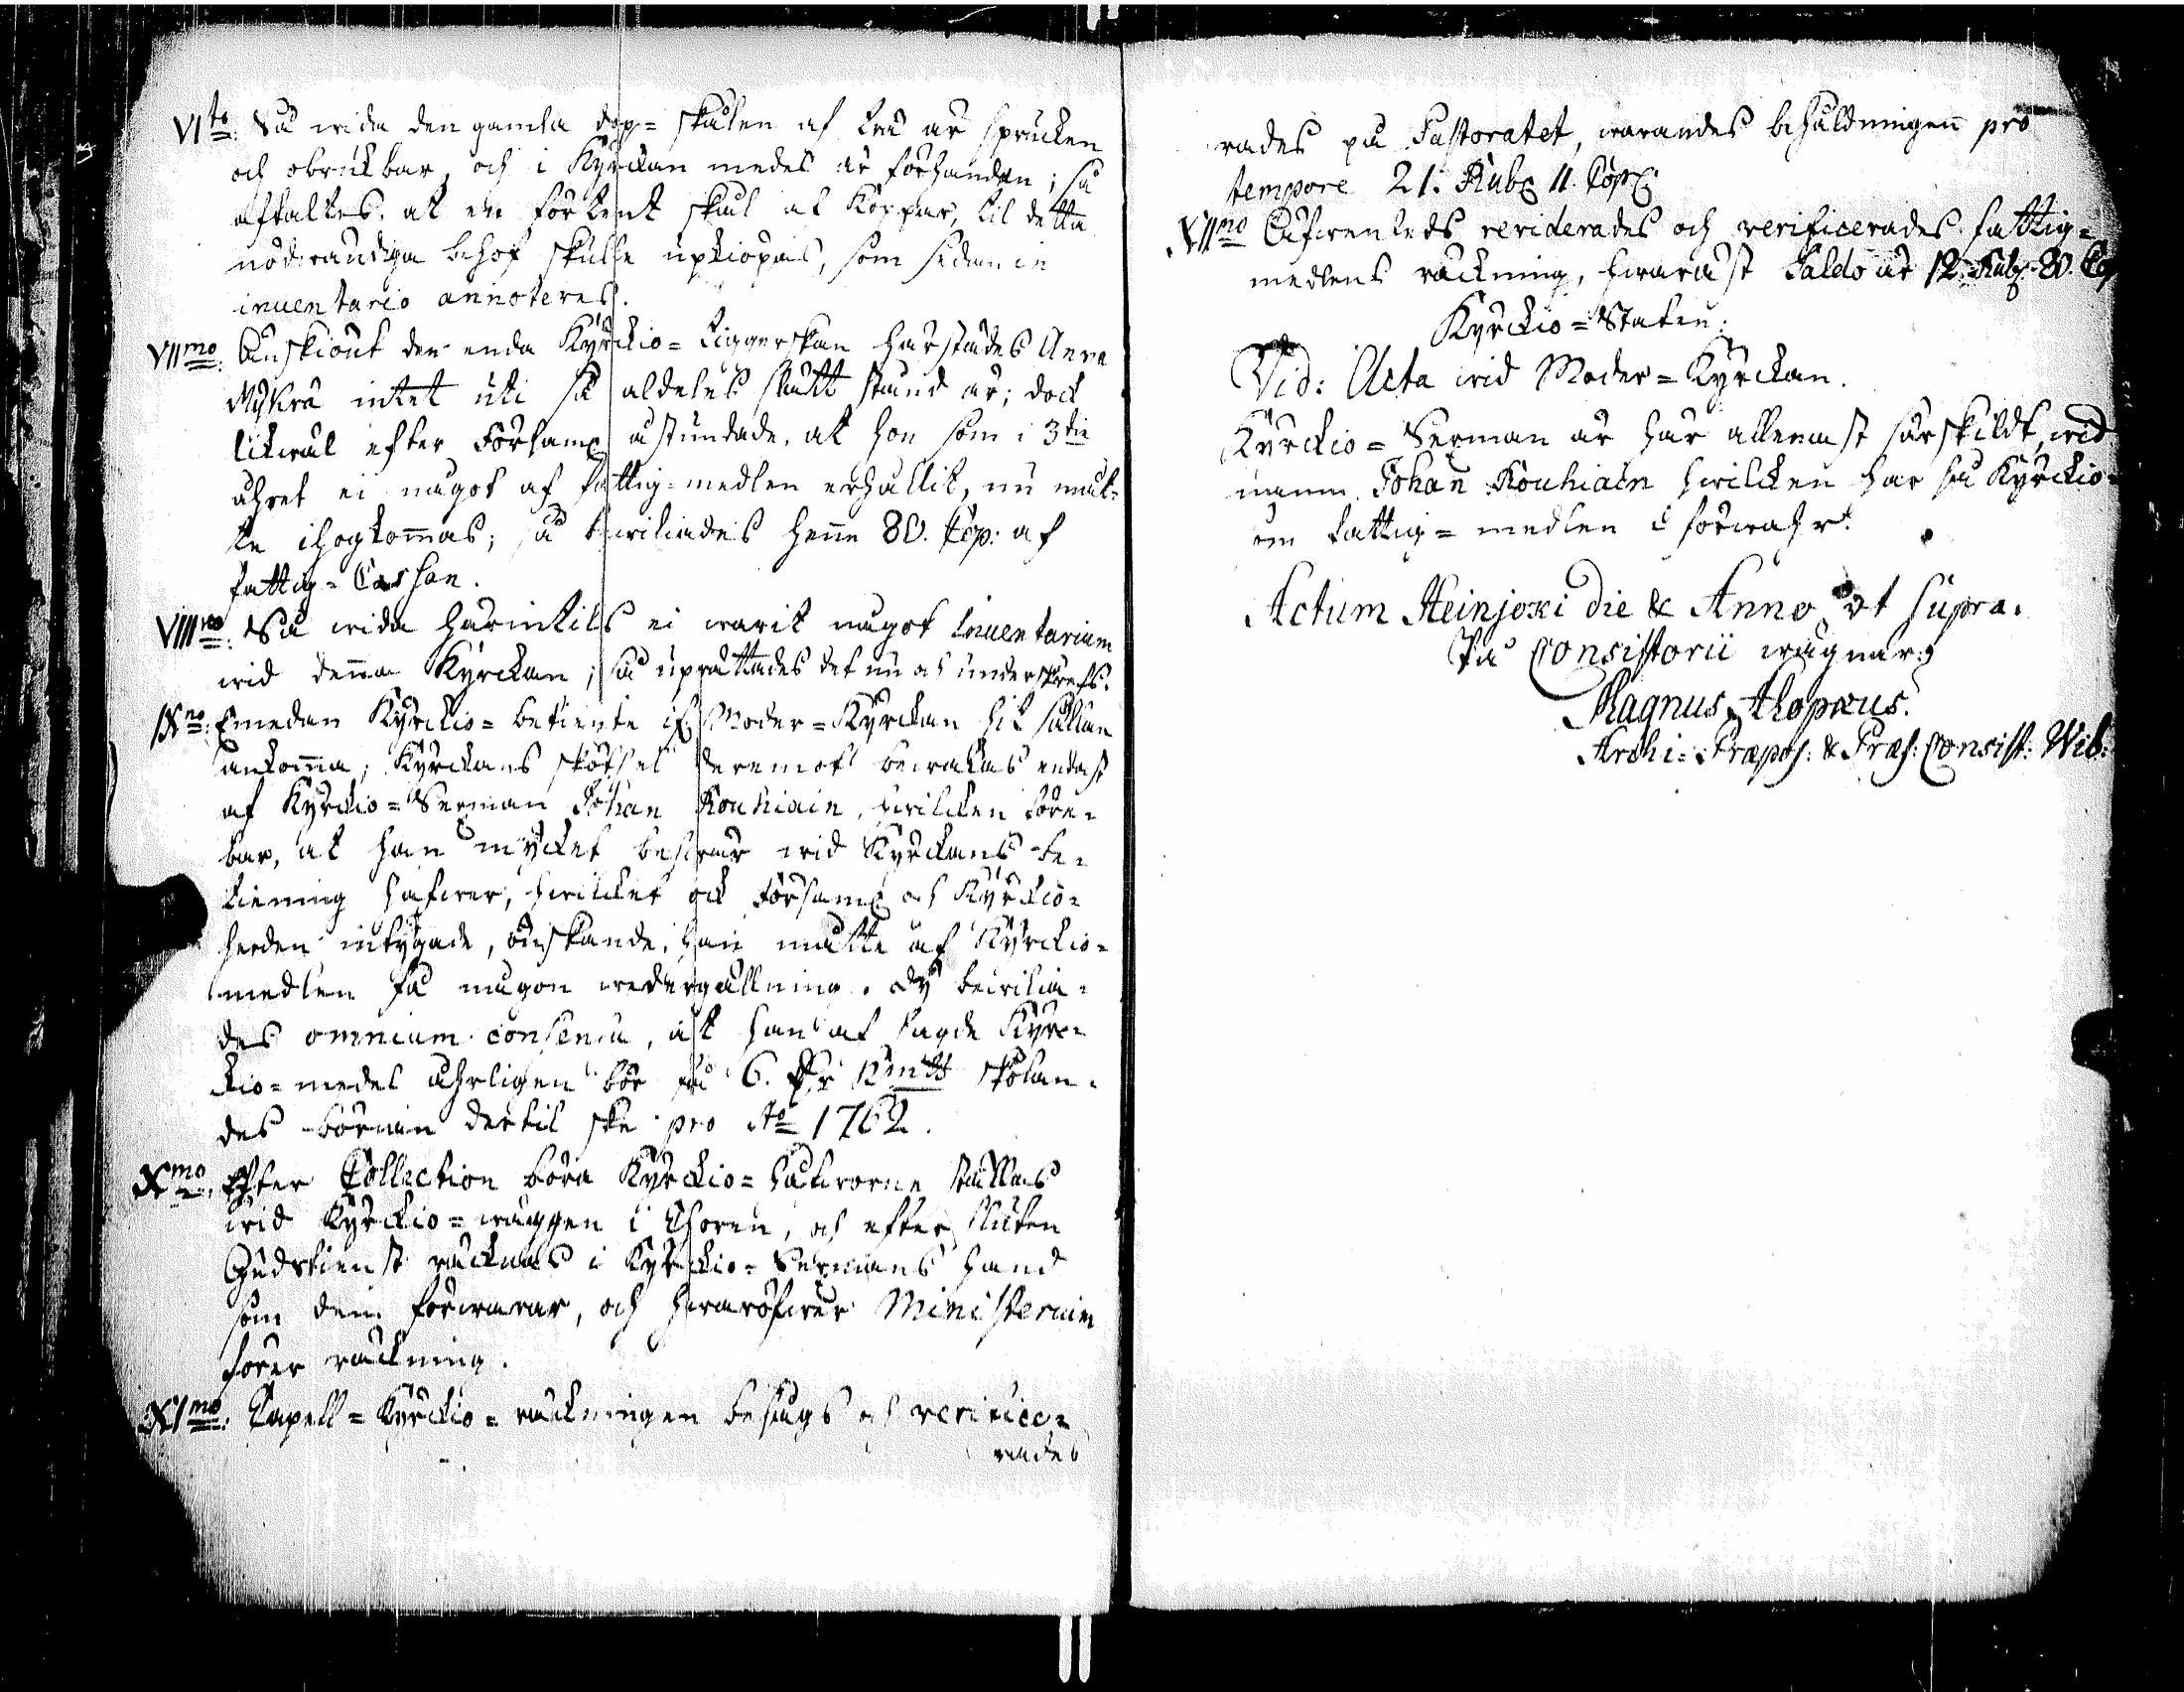 VIto. Så wida den gamla dop= skålen af trä är sprucken
och obrukbar, och i Kyrckan medel är förhanden; så
aftaltes, at en förtent skål af Koppar, til detta
nödwändiga behof skulle upkiöpas, som sedan in
inventario annoteres.
VIImo. Ånskiönt den enda Kyrckio= Tiggerskan härstädes Anna
Mykrä intet uti så aldeles slätt stånd är; dock
likwäl efter Församl: åstundade, at hon som i 3die
åhret ei något af fattig=medlen erhållit, nu måt=
te ihogkommas; så bewiliades henne 80. Kop: af
fattig= Cassan.
VIIIvo. Så wida härintils ei warit något Inventarium
wid denna Kyrckan; så uprättades det nu och underskrefs.
IXno. Emedan Kyrckio= betiente if. Moder= Kyrckan hit sällan
ankomma; Kyrckans skötsel deremot bewakas endast
af Kyrckio= Sexman Johan Kouhiain, hwilcken före=
bar, at han mycket beswär wid Kyrckans be=
tiening hafwer, hwilcket ock Församl: och Kyrckio=
herden intygade, önskande, han måtte af Kyrckio=
medlen få någon wedergällning. Dy bewilia=
des omnium consensu, at han af sagde Kyrc=
kio= medel åhrligen bör få 6. Dr Kmtt skolan=
des början dertil ske pro Ao 1762.
Xmo. Efter Collection böra Kyrckio= håfwarne ställas
wid Kyrckio= wäggen i Choren, och efter sluten
Gudstienst räcknas i Kyrckio= Sexmans hand
som dem förwarar, och hwaröfwer Ministerium
förer räckning.
XImo. Capell= Kyrckio= räckningen besågs och verifice=
rades
rades på Pastoratet, warandes behåldningen pro
tempore 21. Rub: 11. Cop:
XIImo Äfwenleds reviderades och verificerades fattig=
medlens räckning, hwaräst Saldo är 12. Rub: 80. Cop
Kyrckio= Staten:
Vid: Acta wid Moder= Kyrckan.
Kyrckio= Sexman är här allenast särskildt, wid
namn Johan Kouhiain hwilcken har så Kyrckio=
som fattig= medlen i förwahr.
Actum Heinjoki die & Anno ut supra.
På Consistorii wägnar
Magnus Alopæus.
Archi= Præpos: & Præs: Consist: Wib: